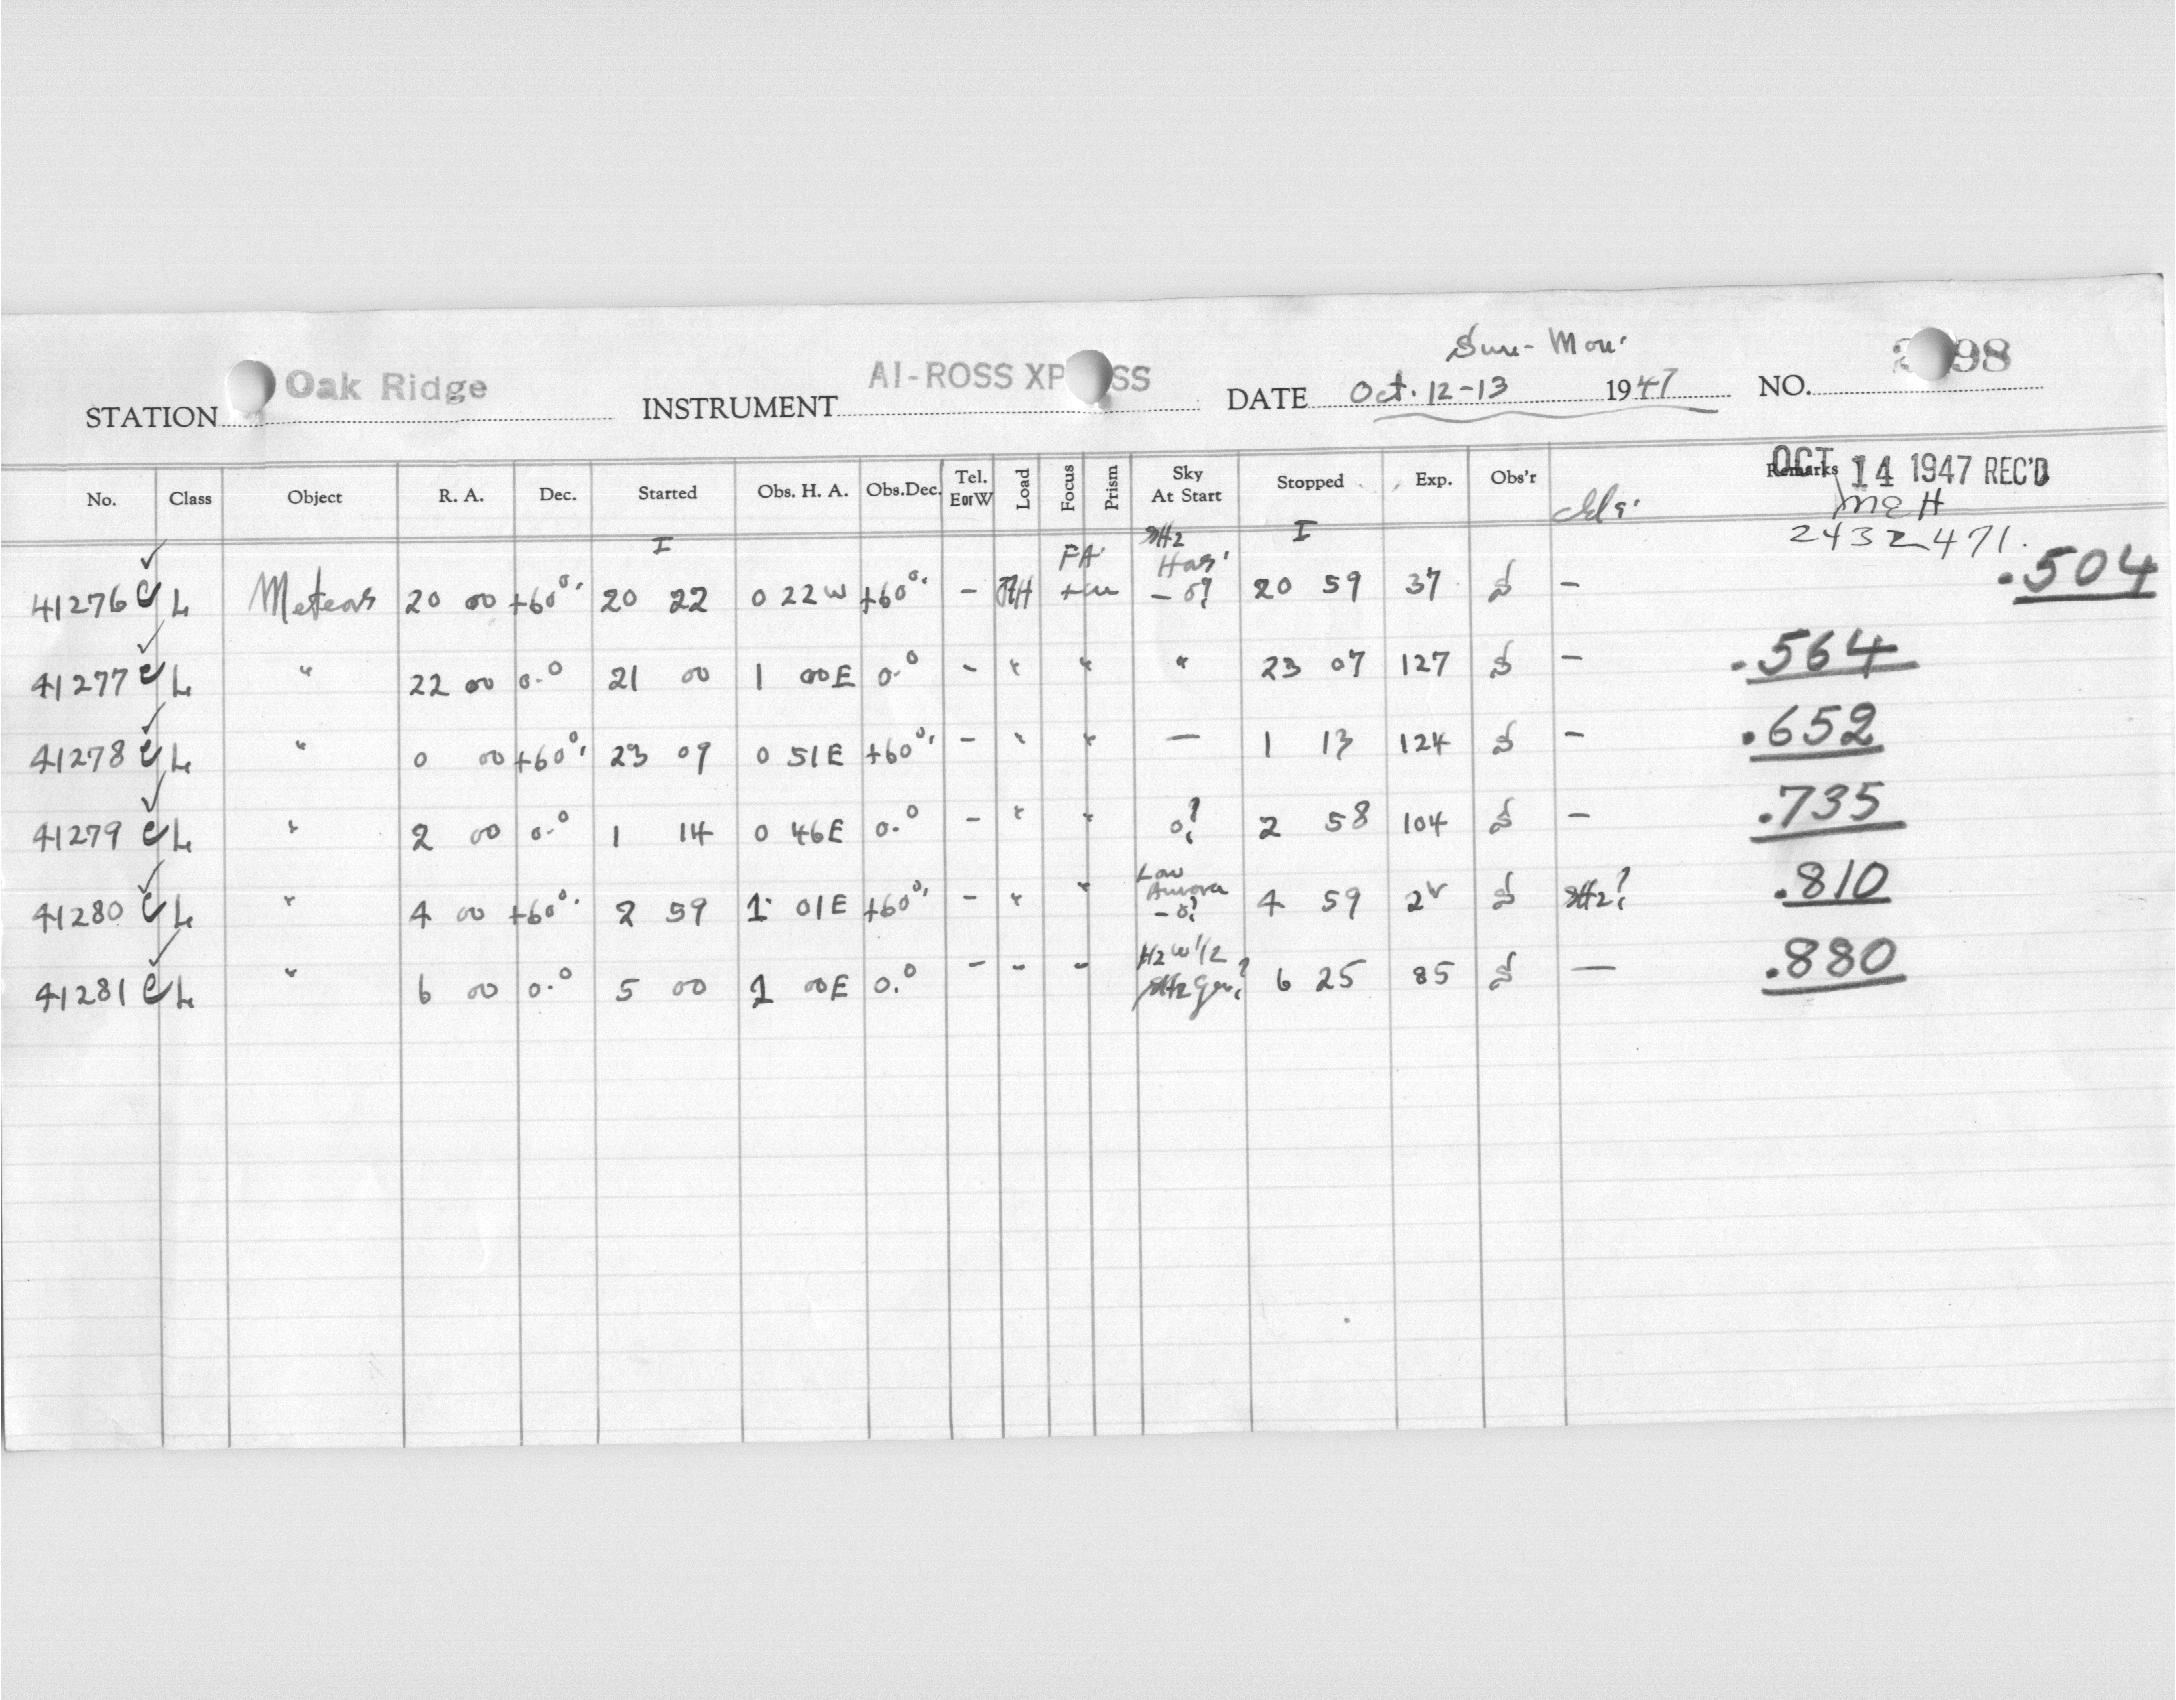 Sun-Mon.
STATION Oak Ridge INSTRUMENT AI-ROSS XP SS DATE Oct. 12-13 1947 NO. 98
OCT 14 1947 REC'D
No. Class Object R. A. Dec. Started Obs. H. A. Obs.Dec. Tel. EorW Load Focus Prism Sky At Start Stopped Exp. Obs'r Remarks
MEH
2432471.
I I
41276 C L Meteors 20 00 +60°. 20 22 0 22W +60°. - +60 20 59 37 S - .504
41277 C L " 22 00 0.° 21 00 1 00E 0.° - " " " 23 07 127 S - .564
41278 C L " 0 00 +60°. 23 09 0 51E +60°. - " " — 1 13 124 S - .652
41279 C L " 2 00 0.° 1 14 0 46E 0.° - " " 0? 2 58 104 S - .735
41280 C L " 4 00 +60°. 2 59 1 01E +60°. - " " Low Aurora - 0? 4 59 S .810
41281 C L " 6 00 0.° 5 00 1 00E 0.° - - - Hz W 1/2 6 25 85 S — .880